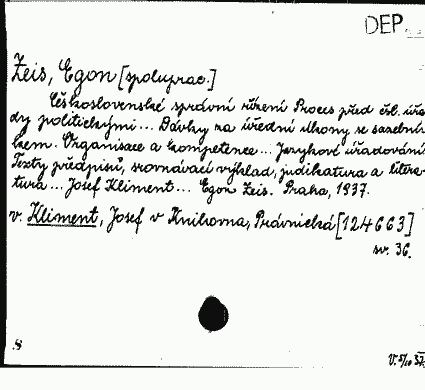 DEP.
Zeis, Egon [spoluprac.]
Československé správní řízení Proces před čsl. úřa-
dy politickými... Dávky za úřední úkony se sazební-
kem. Organisace a kompetence... Jazykové úřadování
Texty předpisů, srovnávací výklad, judikatura a litera-
tura... Josef Kliment... Egon Zeis. Praha, 1937.
v. Kliment, Josef v Knihovna, Právnická [124663]
sv. 36.
8